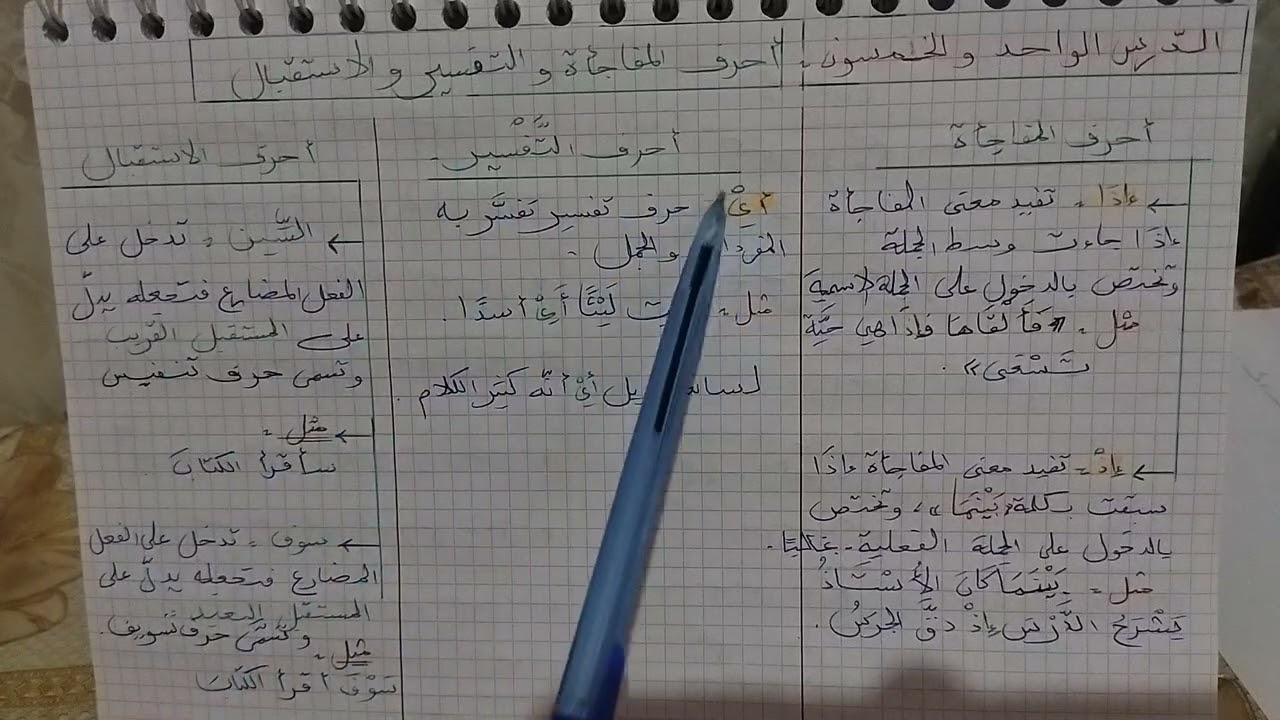 الدّرس الواحد والخمسون : أحرف المفاجأة والتفسير والاستقبال
أحرف المفاجأة
← إذَا : تفيد معنى المفاجأة
إذَا جاءت وسط الجملة
وتختص بالدخول على الجملة الاسمية
مثل : « فَألقَاهَا فَإذَا هِيَ حَيَّةٌ
تَسْعَى » .
← إذْ : تفيد معنى المفاجأة إذَا
سبقت بكلمة « بَيْنَمَا » ، وتختص
بالدخول على الجملة الفعلية غالبًا .
مثل : بَيْنَمَا كَانَ الأُسْتَاذُ
يَشْرَحُ الدَّرْسَ إذْ دَقَّ الجَرَسُ .
أحرف التَّفْسير
أيْ حرف تفسير تفسَّر به
والجمل .
مثل : لَيْثًا أَيْ أسدًا .
أيْ أنّه كثير الكلام .
أحرف الاستقبال
← السِّين : تدخل على
الفعل المضارع فتجعله يدلّ
على المستقبل القريب
وتسمى حرف تنفيس
← مثل :
سأقرأ الكتابَ
← سوف : تدخل على الفعل
المضارع فتجعله يدلّ على
المستقبل البعيد
وتسمّى حرف تسويف .
مثل :
سَوْفَ أقرأ الكتاب